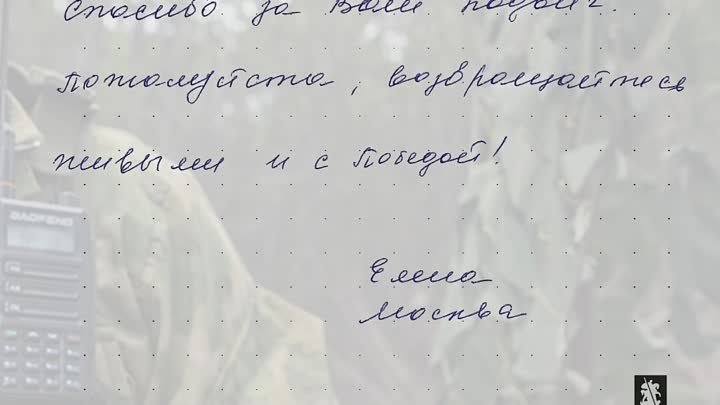 Спасибо за Ваш подвиг.
Пожалуйста, возвращайтесь
живыми и с Победой!
Елена
Москва
BAOFENG